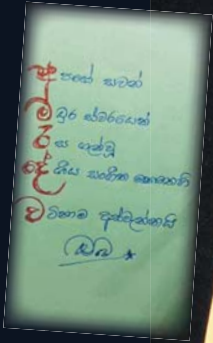 අපගේ සවන්
මධුර ස්වරයෙන්
රස ගැන්වූ
දේශීය සංගීත කෙතෙහි
වටිනාම අස්වැන්නයි
ඔබ